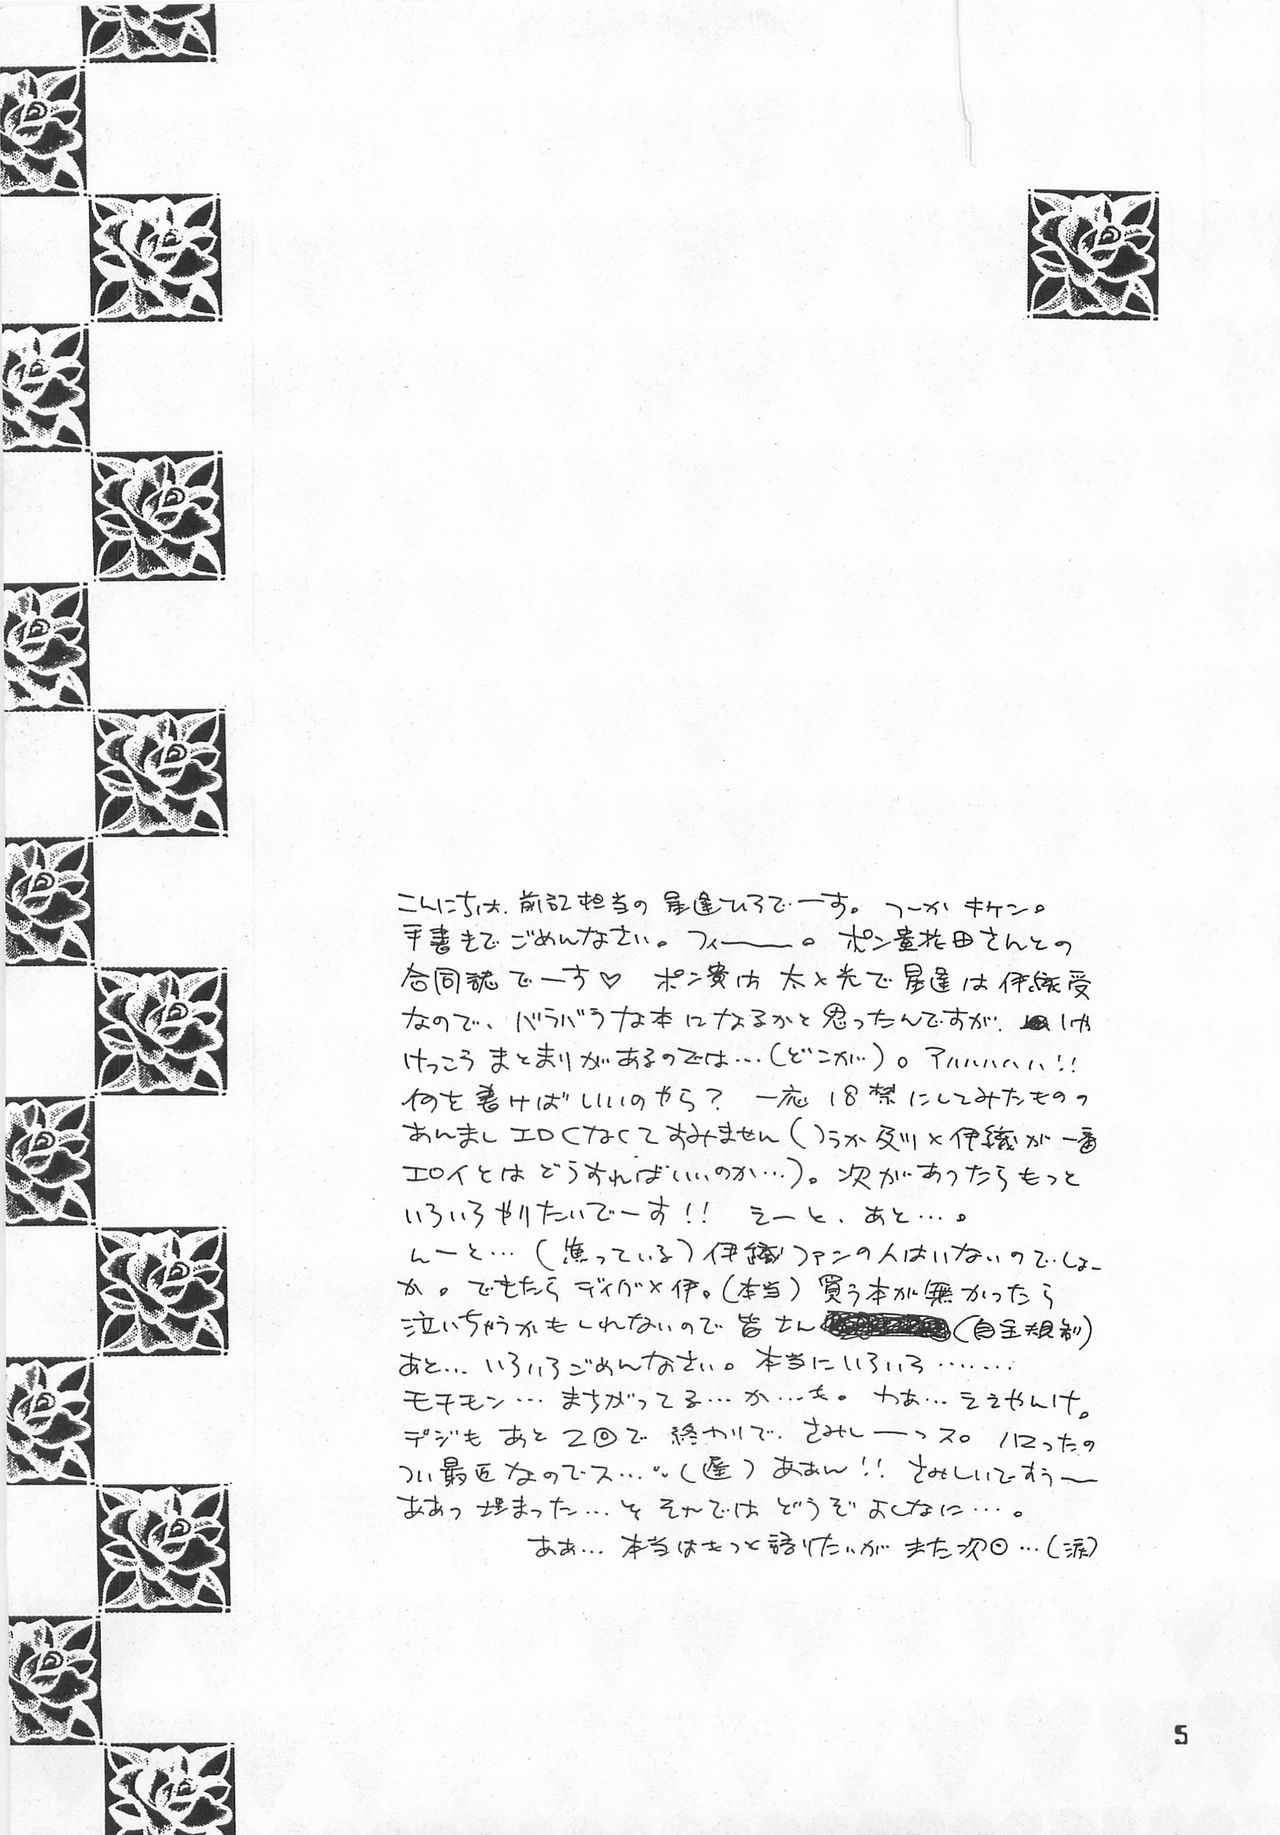 こんにちは、前記担当の星逢ひろでーす。つーかキケン。
手書きでごめんなさい。フィーー。ポン貴花田さんとの
合同誌でーす♡ ポン貴は太と光で星逢は伊織受
なので、バラバラな本になるかと思ったんですが、
けっこうまとまりがあるのでは…(どこが)。アハハハハハ!!
何を書けばいいのやら? 一応18禁にしてみたものの
あんましエロくなくてすみません(つうか及川×伊織が一番
エロイとはどうすればいいのか…)。次があったらもっと
いろいろやりたいでーす!! えーと、あと…。
んーと…(焦っている)伊織ファンの人はいないのでしょー
か。でもたらディガ×伊。(本当)買う本が無かったら
泣いちゃうかもしれないので皆さん(自主規制)
あと…いろいろごめんなさい。本当にいろいろ……
モチモン…まちがってる…か…も。わあ…ええやんけ。
デジもあと2回で終わりで、さみしーーっス。ハマったの
つい最近なのでス…(遅)ああん!! さみしいですぅー
ああっ埋まった…とそれではどうぞよしなに…。
ああ…本当はもっと語りたいがまた次回…(涙)
5